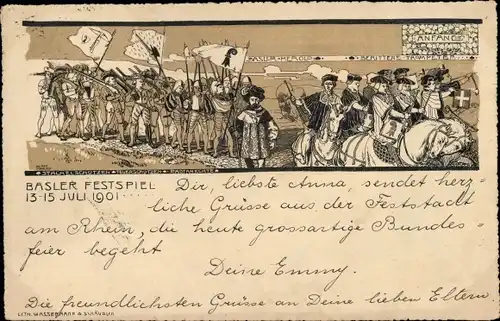 ANFANG
BASLER HEROLD BERITTENE TROMPETER
STACHELSCHÜTZEN
BASLER FESTSPIEL
13-15 JULI 1901
Dir, liebste Anna, sendet herz-
liche Grüsse aus der Feststadt
am Rhein, die heute grossartige Bundes-
feier begeht
Deine Emmy.
Die freundlichsten Grüsse an Deine lieben Eltern.
LITH. WASSERMANN &